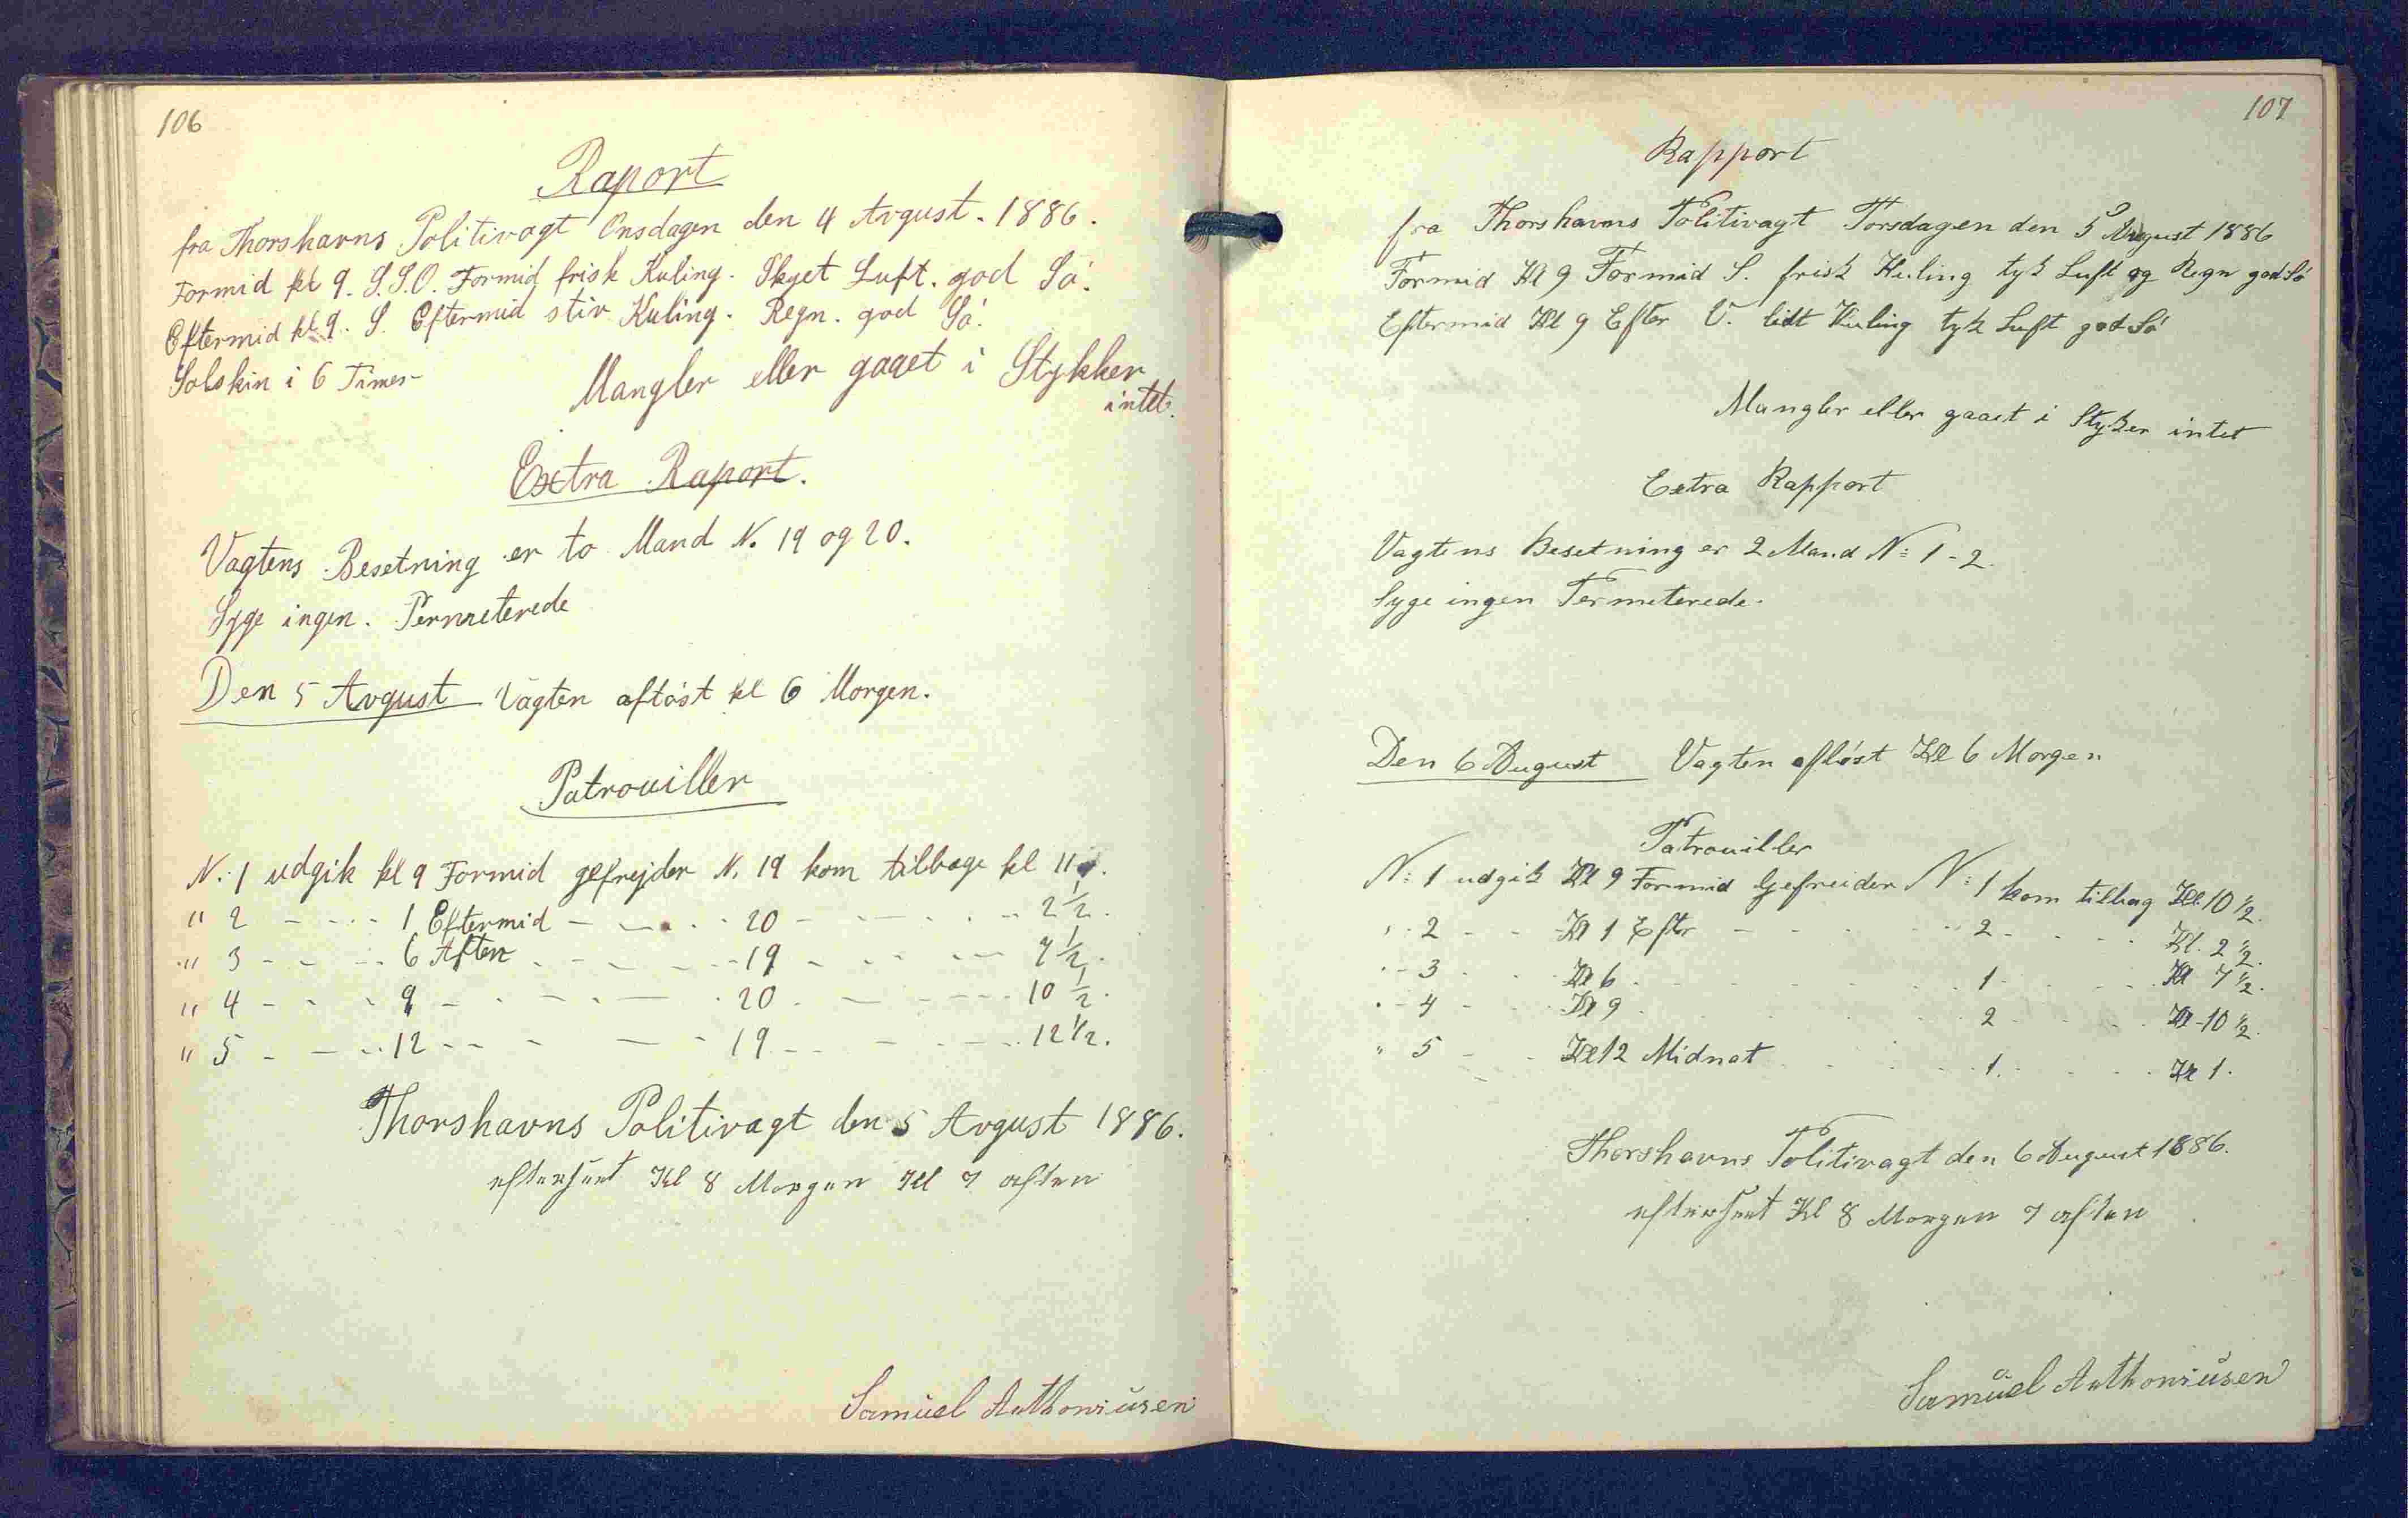 106
Raport
fra Thorshavns Politivagt Onsdagen den 4 Avgust. 1886.
Formid kl 9. S.S.O. Formid frisk Kuling. Skyet Luft. god Sö.
Eftermid kl 9. S. Eftermid stiv Kuling. Regn. god Sö.
Solskin i 6 Timer
Mangler eller gaaet i Stykker
intet.
Extra Raport.
Vagtens Besetning er to Mand N. 19 og 20.
Syge ingen. Permeterede
Den 5 Avgust Vagten aflöst kl 6 Morgen.
Patrouiller
N. 1 udgik kl 9 Formid gefrejder N. 19 kom tilbage kl 11.
" 2 - - - - 1 Eftermid - - - - 20 - - - - - 2 1/2.
" 3 - - - - 6 Aften - - - - 19 - - - - - 7 1/2.
" 4 - - - 9 - - - - - 20 - - - - - 10 1/2.
" 5 - - - - 12 - - - - - 19 - - - - - 12 1/2.
Thorshavns Politivagt den 5 Avgust 1886.
efterseet Kl 8 Morgen Kl 7 aften
Samuel Anthoniusen
107
Rapport
fra Thorshavns Politivagt Torsdagen den 5 August 1886
Formid Kl 9 Formid S. frisk Kuling tyk Luft og Regn god Sö
Eftermid Kl 9 Efter V. lidt Kuling tyk Luft god Sö
Mangler eller gaaet i Styker intet
Extra Rapport
Vagtens Besetning er 2 Mand N: 1 - 2.
Syge ingen Permeterede.
Den 6 August Vagten aflöst Kl 6 Morgen
Patrouiller
N: 1 udgik Kl 9 Formid Gefreider N: 1 kom tilbag Kl. 10 1/2.
" 2 - - Kl 1 Efter - - - - 2 - - - - Kl. 2 1/2.
" 3 - - Kl 6 - - - - 1 - - - - Kl 7 1/2.
" 4 - - Kl 9 - - - - 2 - - - - Kl 10 1/2.
" 5 - - Kl 12 Midnat - - - - 1 - - - - Kl 1.
Thorshavns Politivagt den 6 August 1886.
efterseet Kl 8 Morgen 7 aften
Samuel Anthoniusen